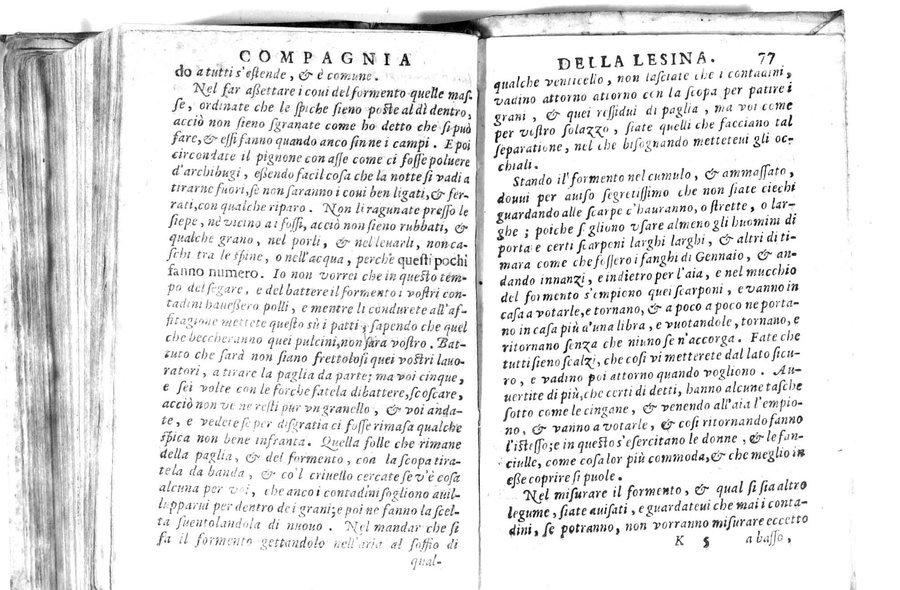 COMPAGNIA
do a tutti s'eſtende, & è comune.
Nel far aßettare i coui del formento quelle maſ-
ſe, ordinate che le ſpiche ſieno poſte al dì dentro,
acciò non ſieno ſgranate come ho detto che ſi può
fare, & eſſi fanno quando anco ſinne i campi. E poi
circondate il pignone con aſſe come ci foſſe poluere
d'archibugi, eſſendo facil coſa che la notte ſi vadi a
tirarne fuori, ſe non ſaranno i coui ben ligati, & ſer-
rati, con qualche riparo. Non li ragunate preſſo le
ſiepe, nè vicino a i foſſi, acciò non ſieno rubbati, &
qualche grano, nel porli, & nel leuarli, non ca-
ſchi tra le ſpine, o nell'acqua, perchè queſti pochi
fanno numero. Io non vorrei che in queſto tem-
po del ſegare, e del battere il formento i voſtri con-
tadini haueßero polli, e mentre li condurete all'af-
fitagione mettete queſto sù i patti, ſapendo che quel
che beccheranno quei pulcini, non ſarà voſtro. Bat-
tuto che ſarà non ſiano frettoloſi quei voſtri lauo-
ratori, a tirare la paglia da parte; ma voi cinque,
e ſei volte con le forche fatela dibattere, ſcoſcare,
acciò non ve ne reſti pur vn granello, & voi anda-
te, e vedete ſe per diſgratia ci foſſe rimaſa qualche
ſpica non bene infranta. Quella folle che rimane
della paglia, & del formento, con la ſcopa tira-
tela da banda, & co'l criuello cercate ſe v'è coſa
alcuna per voi, che anco i contadini ſogliono auil-
lupparui per dentro dei grani; e poi ne fanno la ſcel-
ta ſuentolandola di nuouo. Nel mandar che ſi
fa il formento gettandolo nell'aria al ſoffio di
qual-
DELLA LESINA. 77
qualche venticello, non laſciate che i contadini,
vadino attorno attorno con la ſcopa per patire i
grani, & quei reſſidui di paglia, ma voi come
per voſtro ſolazzo, ſiate quelli che facciano tal
ſeparatione, nel che biſognando metteteui gli oc-
chiali.
Stando il formento nel cumulo, & ammaſſato,
doui per auiſo ſegretiſſimo che non ſiate ciechi
guardando alle ſcarpe c'hauranno, o ſtrette, o lar-
ghe; poiche ſogliono vſare almeno gli huomini di
porta e certi ſcarponi larghi larghi, & altri di ti-
mara come che foſſero i fanghi di Gennaio, & an-
dando innanzi, e indietro per l'aia, e nel mucchio
del formento s'empieno quei ſcarponi, e vanno in
caſa a votarle, e tornano, & a poco a poco ne porta-
no in caſa più d'una libra, e vuotandole, tornano, e
ritornano ſenza che niuno ſe n'accorga. Fate che
tutti ſieno ſcalzi, che coſi vi metterete dal lato ſicu-
ro, e vadino poi attorno quando vogliono. Au-
uertite di più, che certi di detti, hanno alcune taſche
ſotto come le cingane, & venendo all'aia l'empio-
no, & vanno a votarle, & coſi ritornando fanno
l'iſteſſo; e in queſto s'eſercitano le donne, & le fan-
ciulle, come coſa lor più commoda, & che meglio in
eße coprire ſi puole.
Nel miſurare il formento, & qual ſi ſia altro
legume, ſiate auiſati, e guardateui che mai i conta-
dini, ſe potranno, non vorranno miſurare eccetto
K 5 a baſſo,